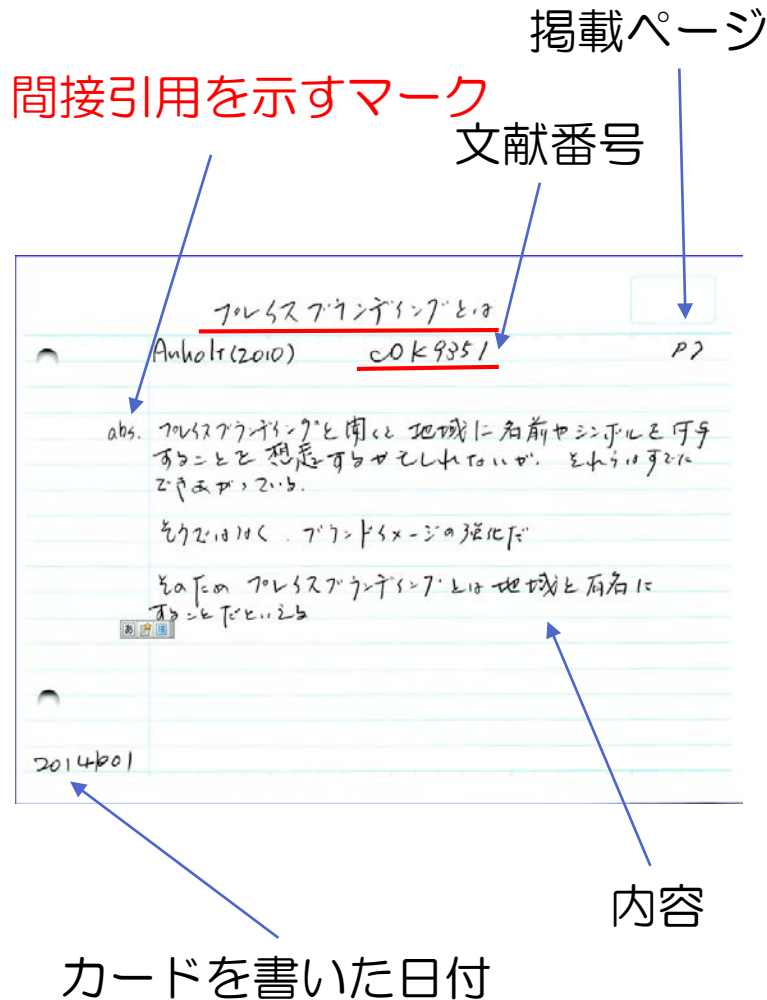 掲載ページ
間接引用を示すマーク
文献番号
プレイスブランディングとは
Anholt(2010) COK9351 P7
abs. プレイスブランディングと聞くと地域に名前やシンボルを付与
することを想起するかもしれないが、それらはすでに
できあがっている.
そうではなく、ブランドイメージの強化だ
そのため プレイスブランディングとは地域を有名に
することだといえる
あ
内容
カードを書いた日付